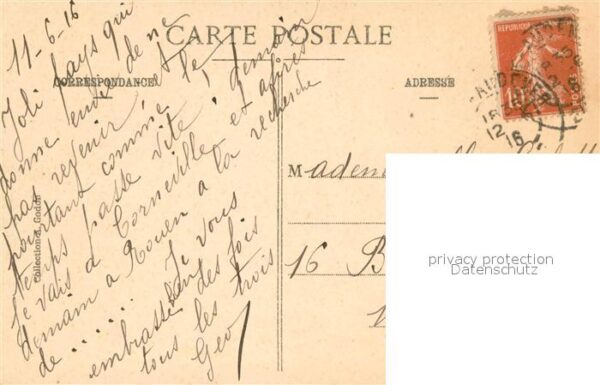 CARTE POSTALE
CORRESPONDANCE
ADRESSE
11-6-16
Joli pays qui
donne envie de ne
pas revenir, et
pourtant comme le
temps passe vite, demain
je vais à Corneville et après
demain à Rouen à la recherche
de ........ Je vous
embrasse des fois
tous les trois
Geo
Collection Godos
Madem
16 B
privacy protection
Datenschutz
REPUBLIQUE
16